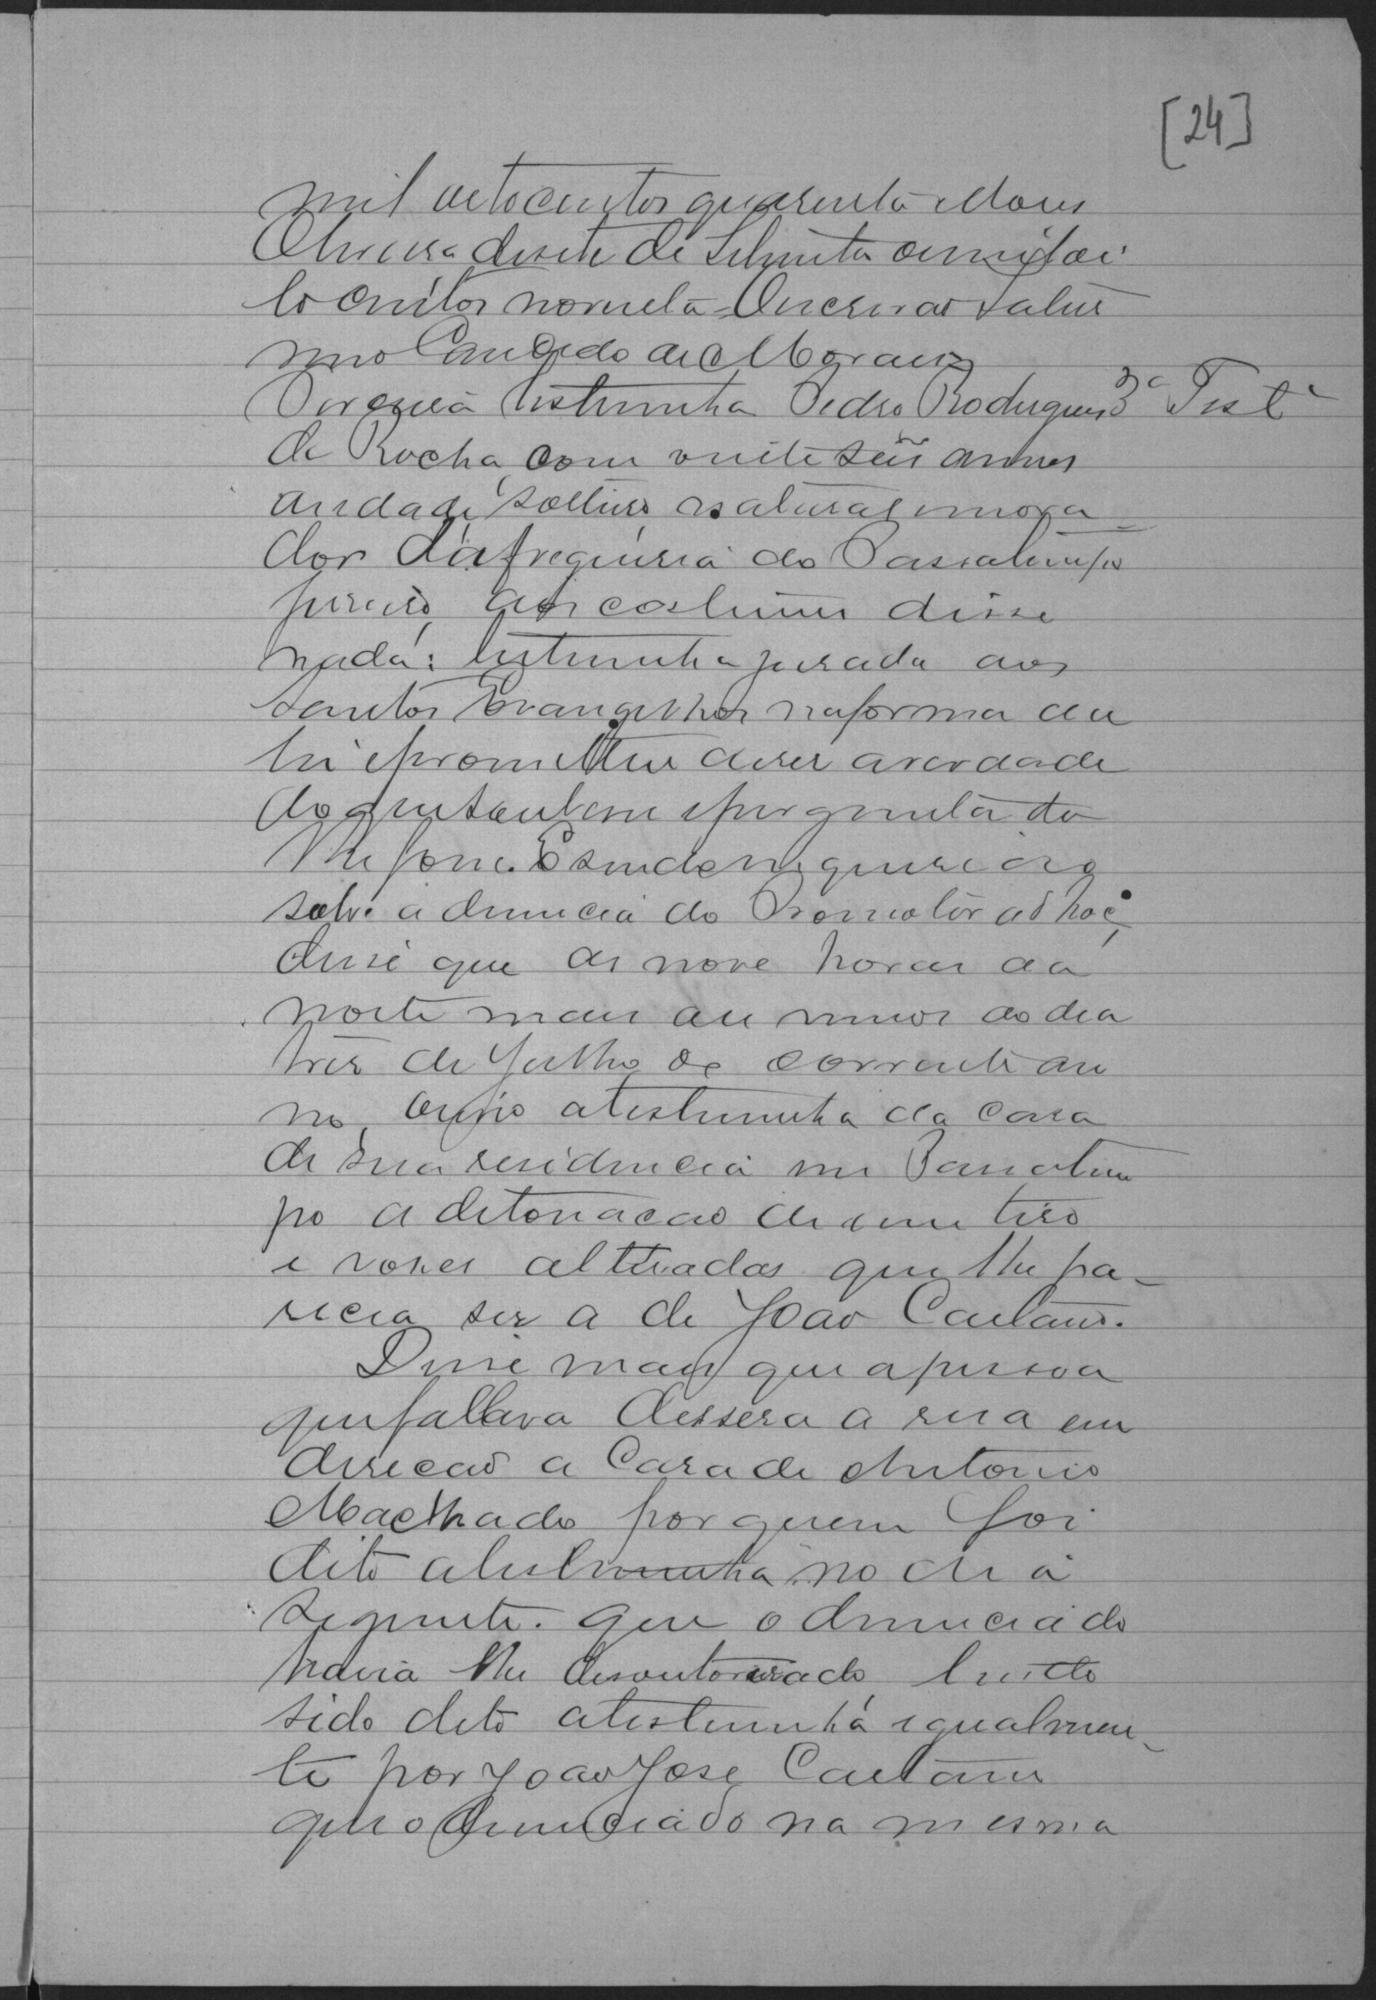 [24]
mil oitocentos quarenta
Oliveira desete de Setembro de mil oi
to centos noventa O escrivão Satur
nino Candido de Moraes
Terceira testemunha Pedro Rodrigues 3ª Testª
da Rocha, com vinte seis annos
de idade, solteiro, natural e mora_
dor da freguesia do Passatempo
jurou, aos costumes disse
nada: testemunha jurada aos
Santos Evangelhos na forma da
lei e prometteu diser a verdade
do que soubesse e perguntado
lhe fosse. E sendo inquirido
sobre a denuncia do Promotor ad hoc,
disse que as nove horas da
noite mais ou menos do dia
tres de Julho do corrente an
no, ouvio a testemunha da casa
de sua residencia em Passatem
po a detonacao de um tiro
e vozes alteradas que lhe pa_
recia ser a de João Caetano.
Disse mais que a pessoa
que fallava dessera a rua em
direcão a Casa de Antonio
Machado por quem foi
dito a testemunha no dia
seguinte. que o denunciado
havia lhe desautorisado, tendo
sido dito a testemunha igualmen_
te por João José Caetano
que o denunciado na mesma